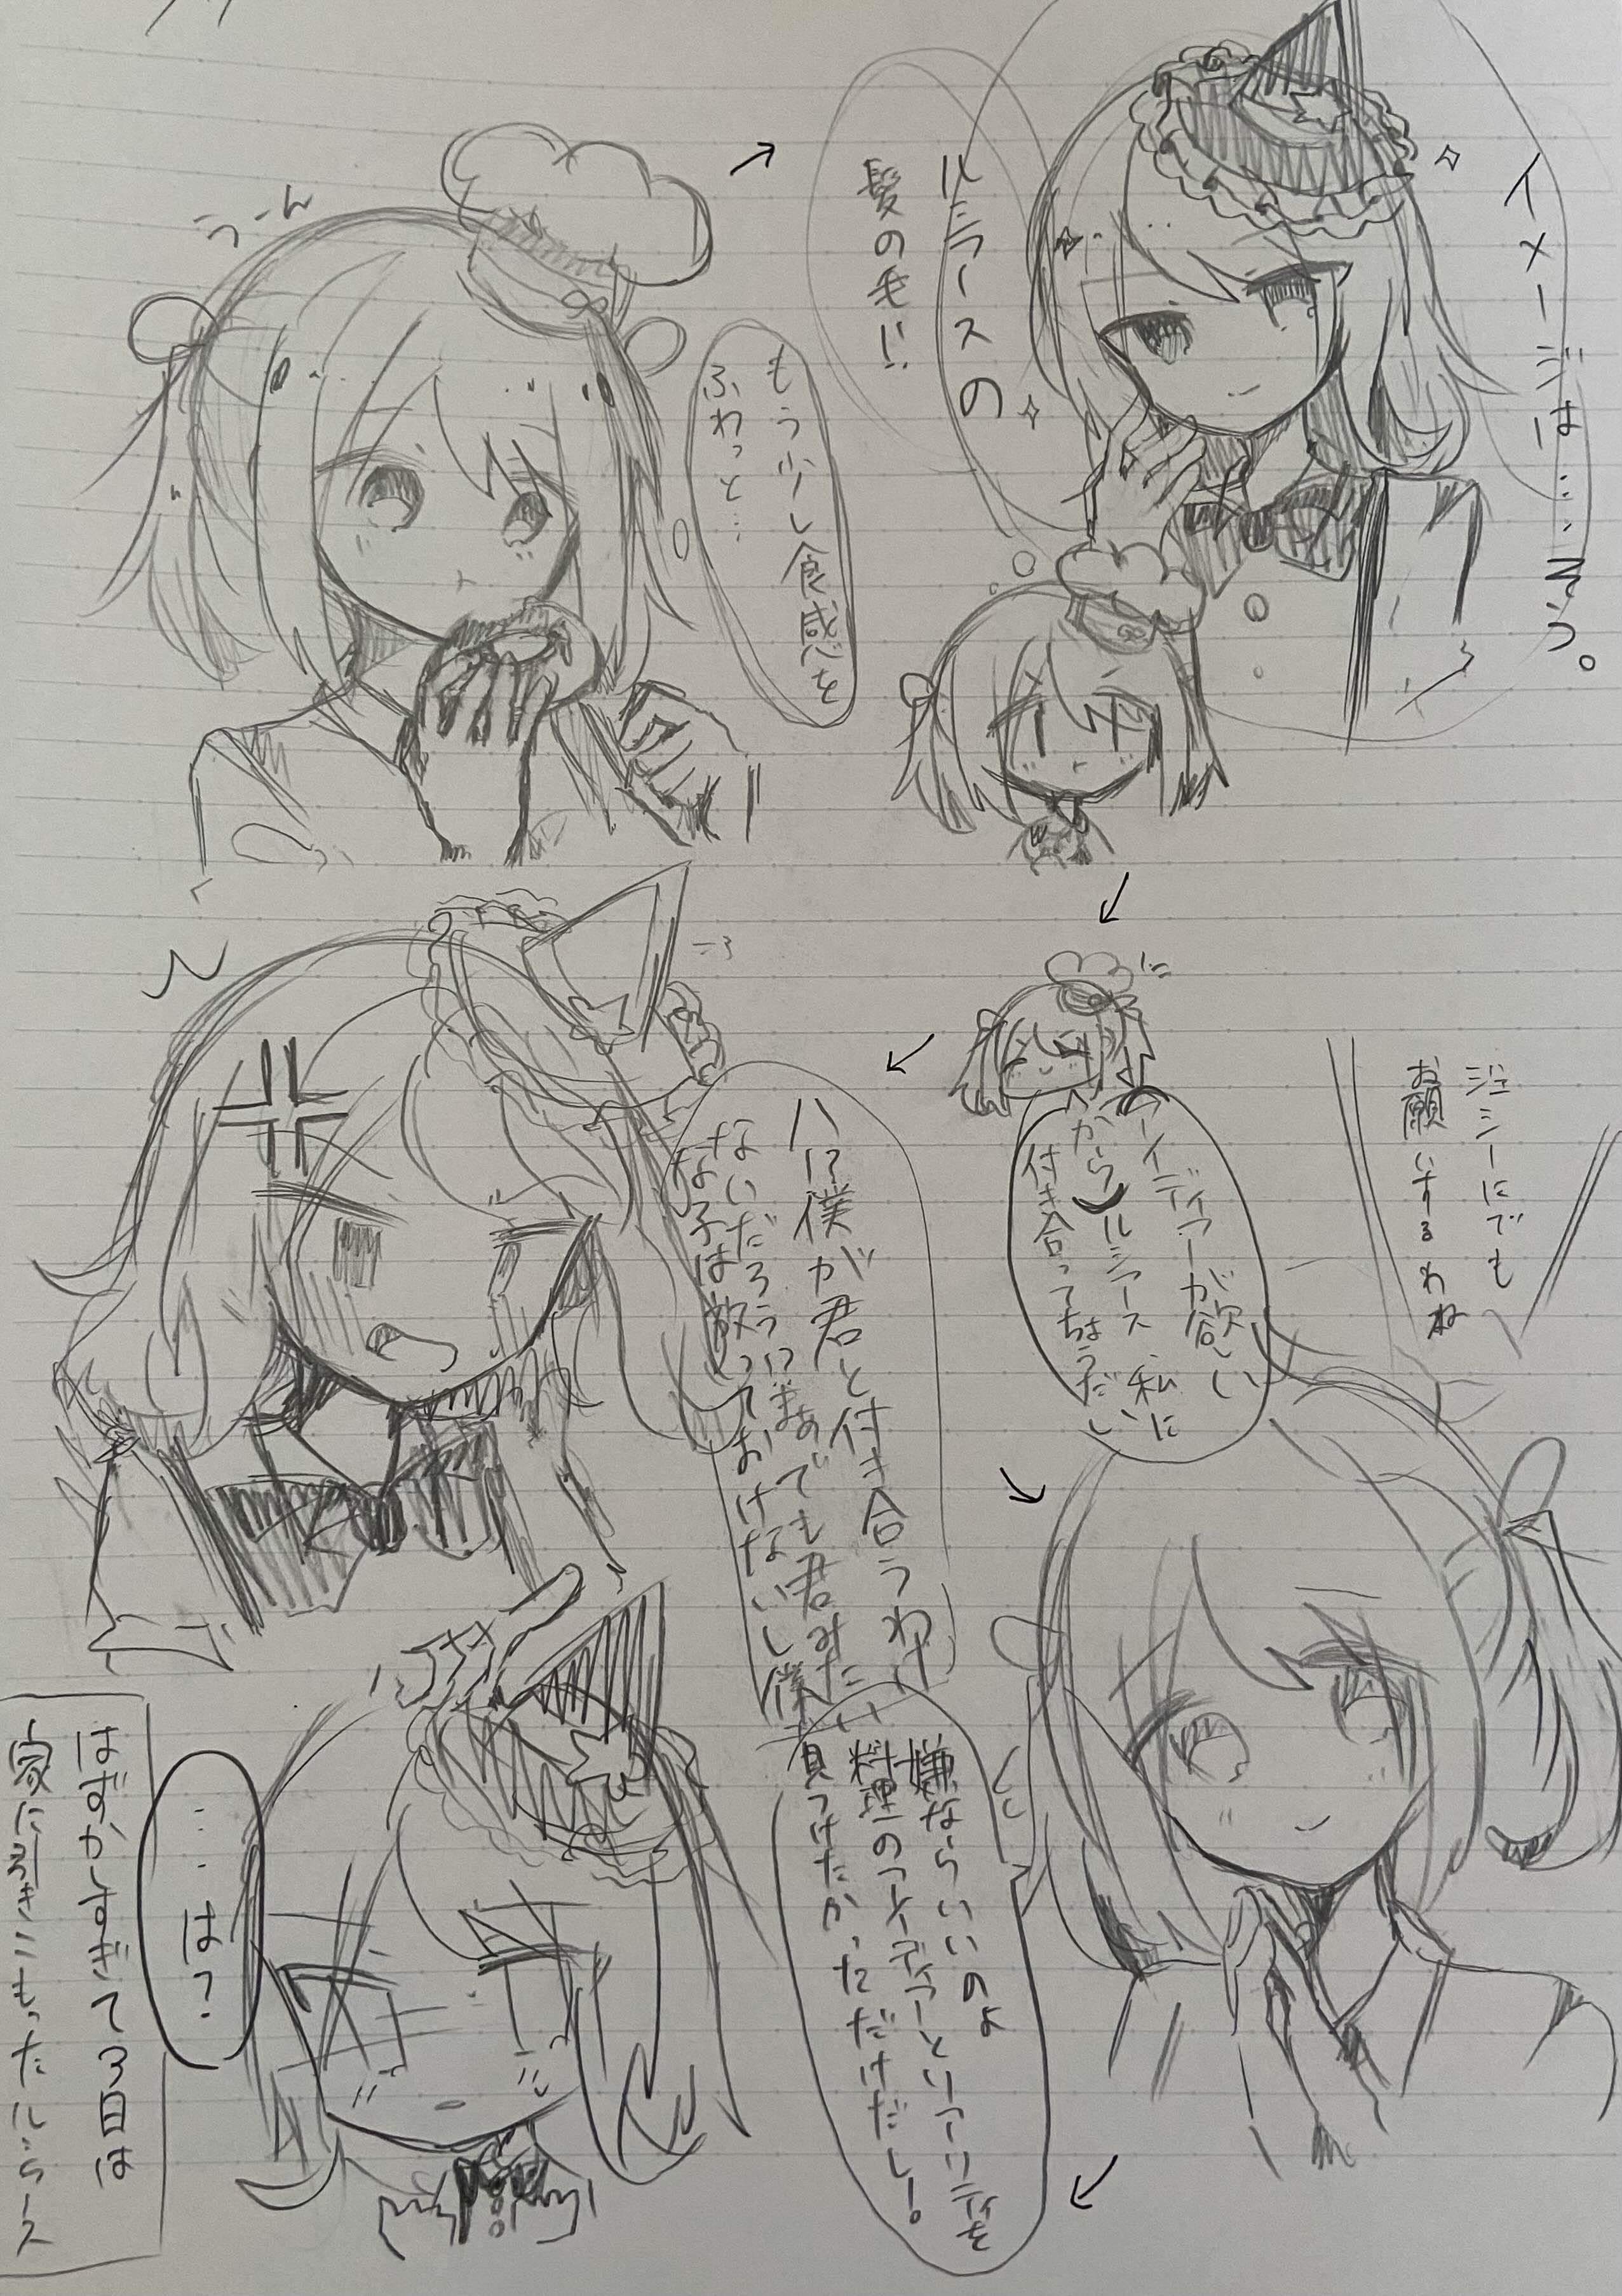 うーん
もう少し食感を
ふわっと…
イメージは…そう。
ルミラースの
髪の毛!!
アイディアーが欲しい
から、ルミラース、私に
付き合ってちょうだい
ハ!?僕が君と付き合うわけ
ないだろう!?まあでも君みたい
な子は放っておけないし僕
嫌ならいいのよ
料理のアイディアーとリアリティを
見つけたかっただけだし!
ジェシーにでも
お願いするわね
…は?
はずかしすぎて3日は
家に引きこもったルミラース